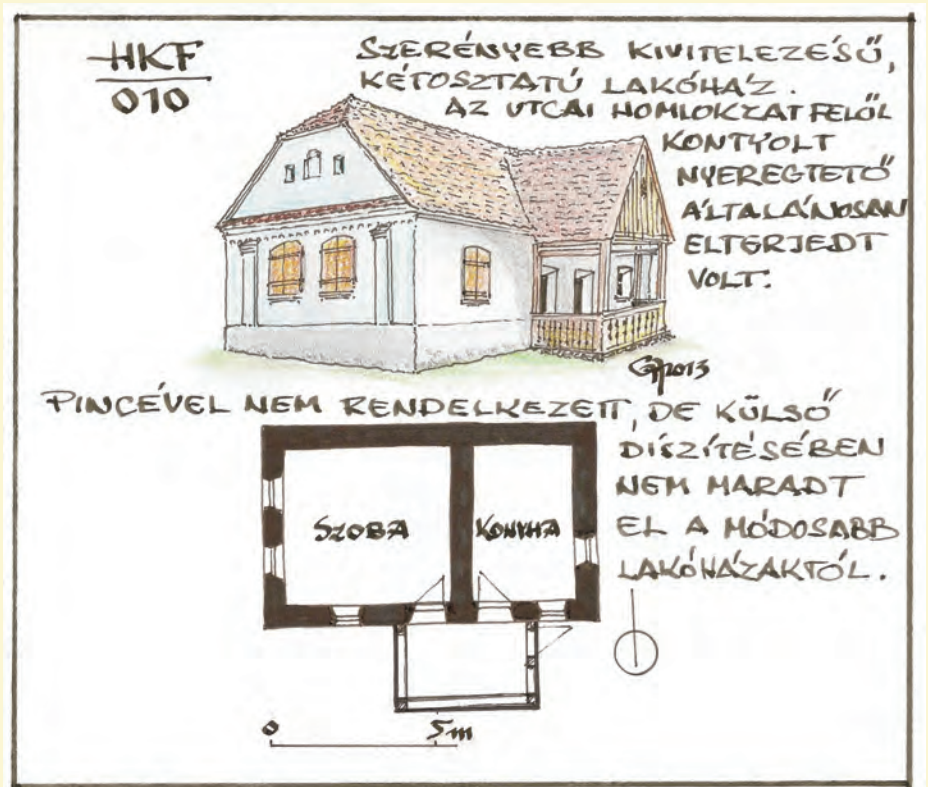 HKF
010
SZERÉNYEBB KIVITELEZÉSŰ,
KÉTOSZTATÚ LAKÓHÁZ.
AZ UTCAI HOMLOKZAT FELŐL
KONTYOLT
NYEREGTETŐ
ÁLTALÁNOSAN
ELTERJEDT
VOLT.
2013
PINCÉVEL NEM RENDELKEZETT, DE KÜLSŐ
DÍSZÍTÉSÉBEN
NEM MARADT
EL A MÓDOSABB
LAKÓHÁZAKTÓL.
SZOBA
KONYHA
0 5m